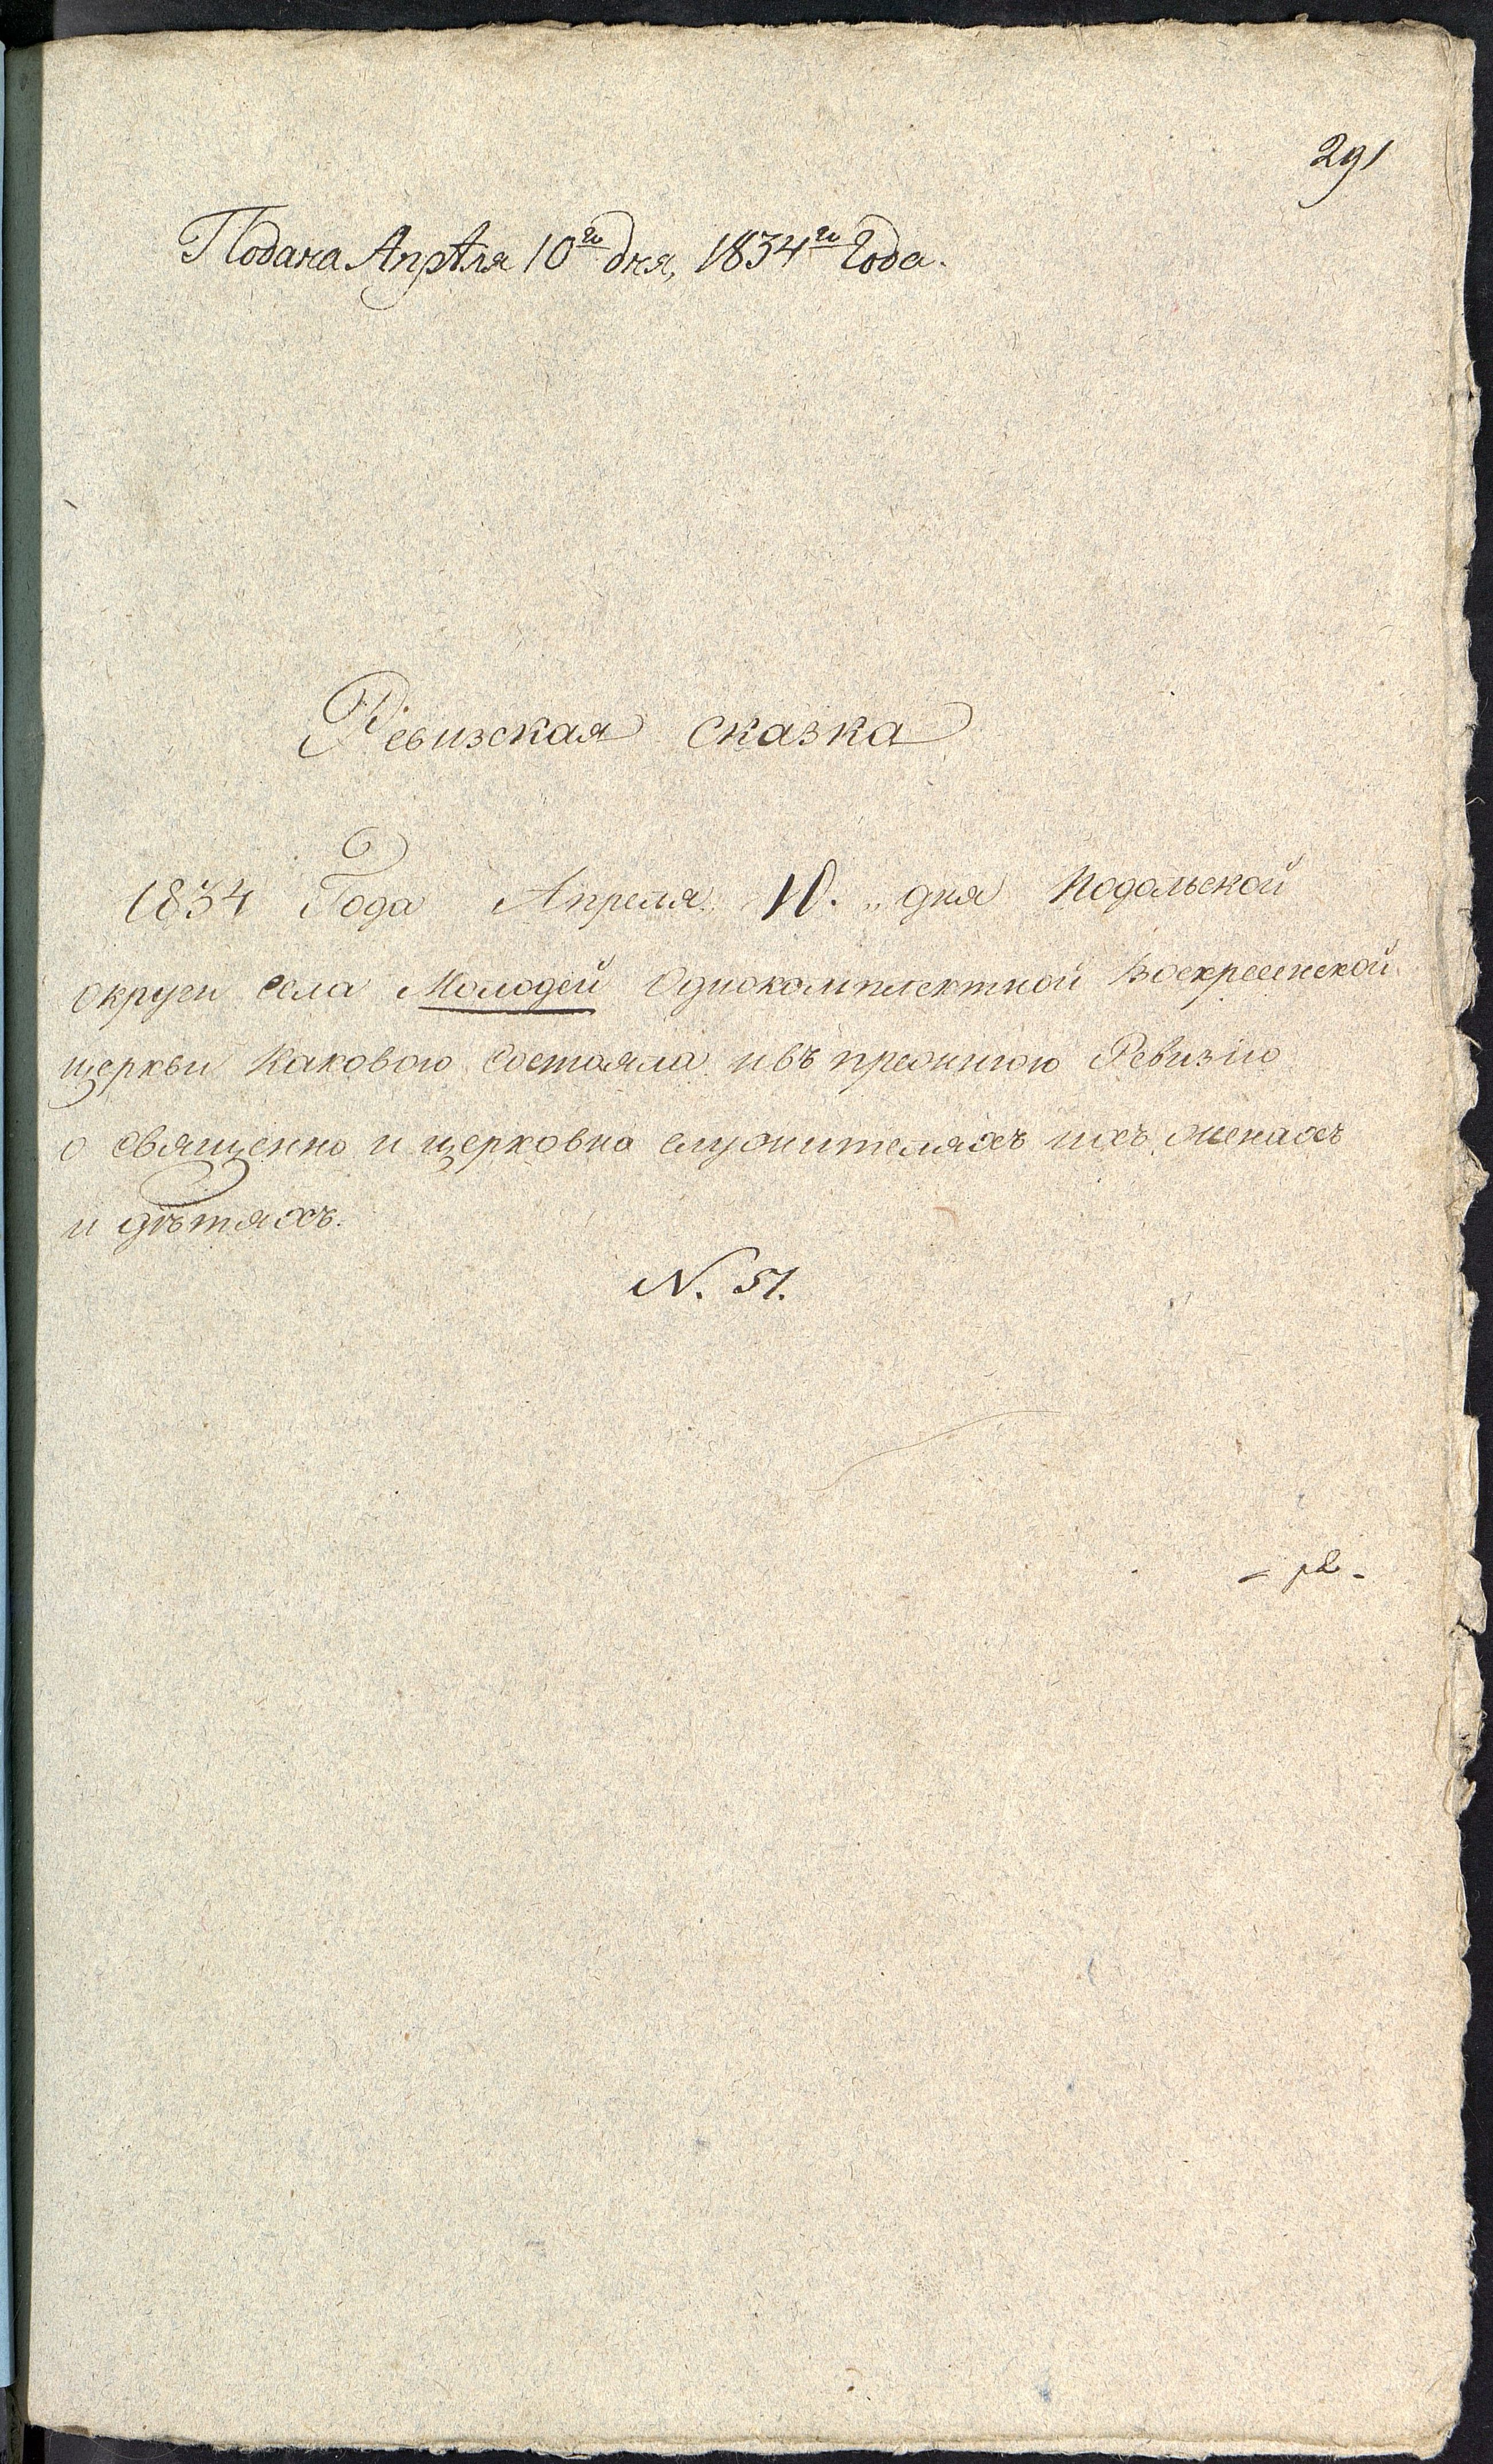 291
Подана Апрѣля 10го дня, 1834го Года.
Ревизская сказка
1834 Года Апреля 10. „ дня Подольской
округи села Молодей Однокомплектной Воскресенской
церкви Каковою Состояла ивъ прежнюю Ревизiю
о священно и церковно служителяхъ ихъ женахъ
и дѣтяхъ.
N. 51.